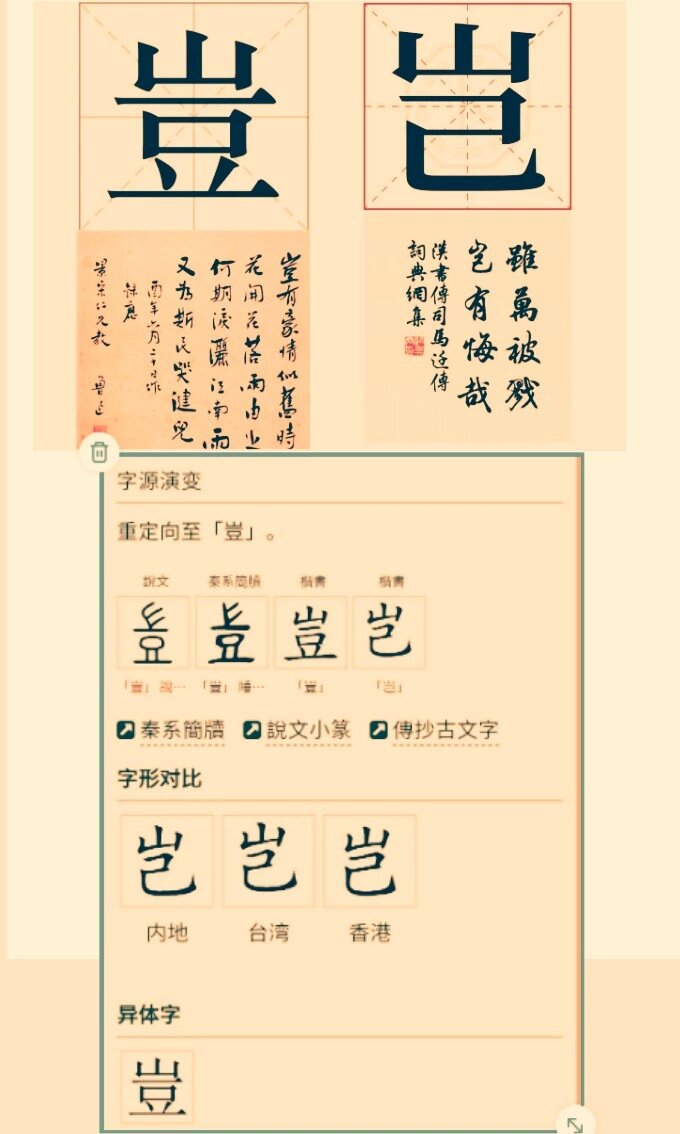 豈
岂
豈有豪情似舊時
花開花落兩由之
何期淚灑江南雨
又為斯民哭健兒
酉年六月二十日作
錄應
景宋仁兄教
魯迅
雖萬被戮
岂有悔哉
漢書傳司馬迁傳
詞典網集
字源演变
重定向至「豈」。
說文 秦系简牘 楷書 楷書
豈 豈 豈 岂
「豈」說… 「豈」睡… 「豈」 「岂」
秦系簡牘 說文小篆 傳抄古文字
字形对比
岂 岂 岂
内地 台湾 香港
异体字
豈